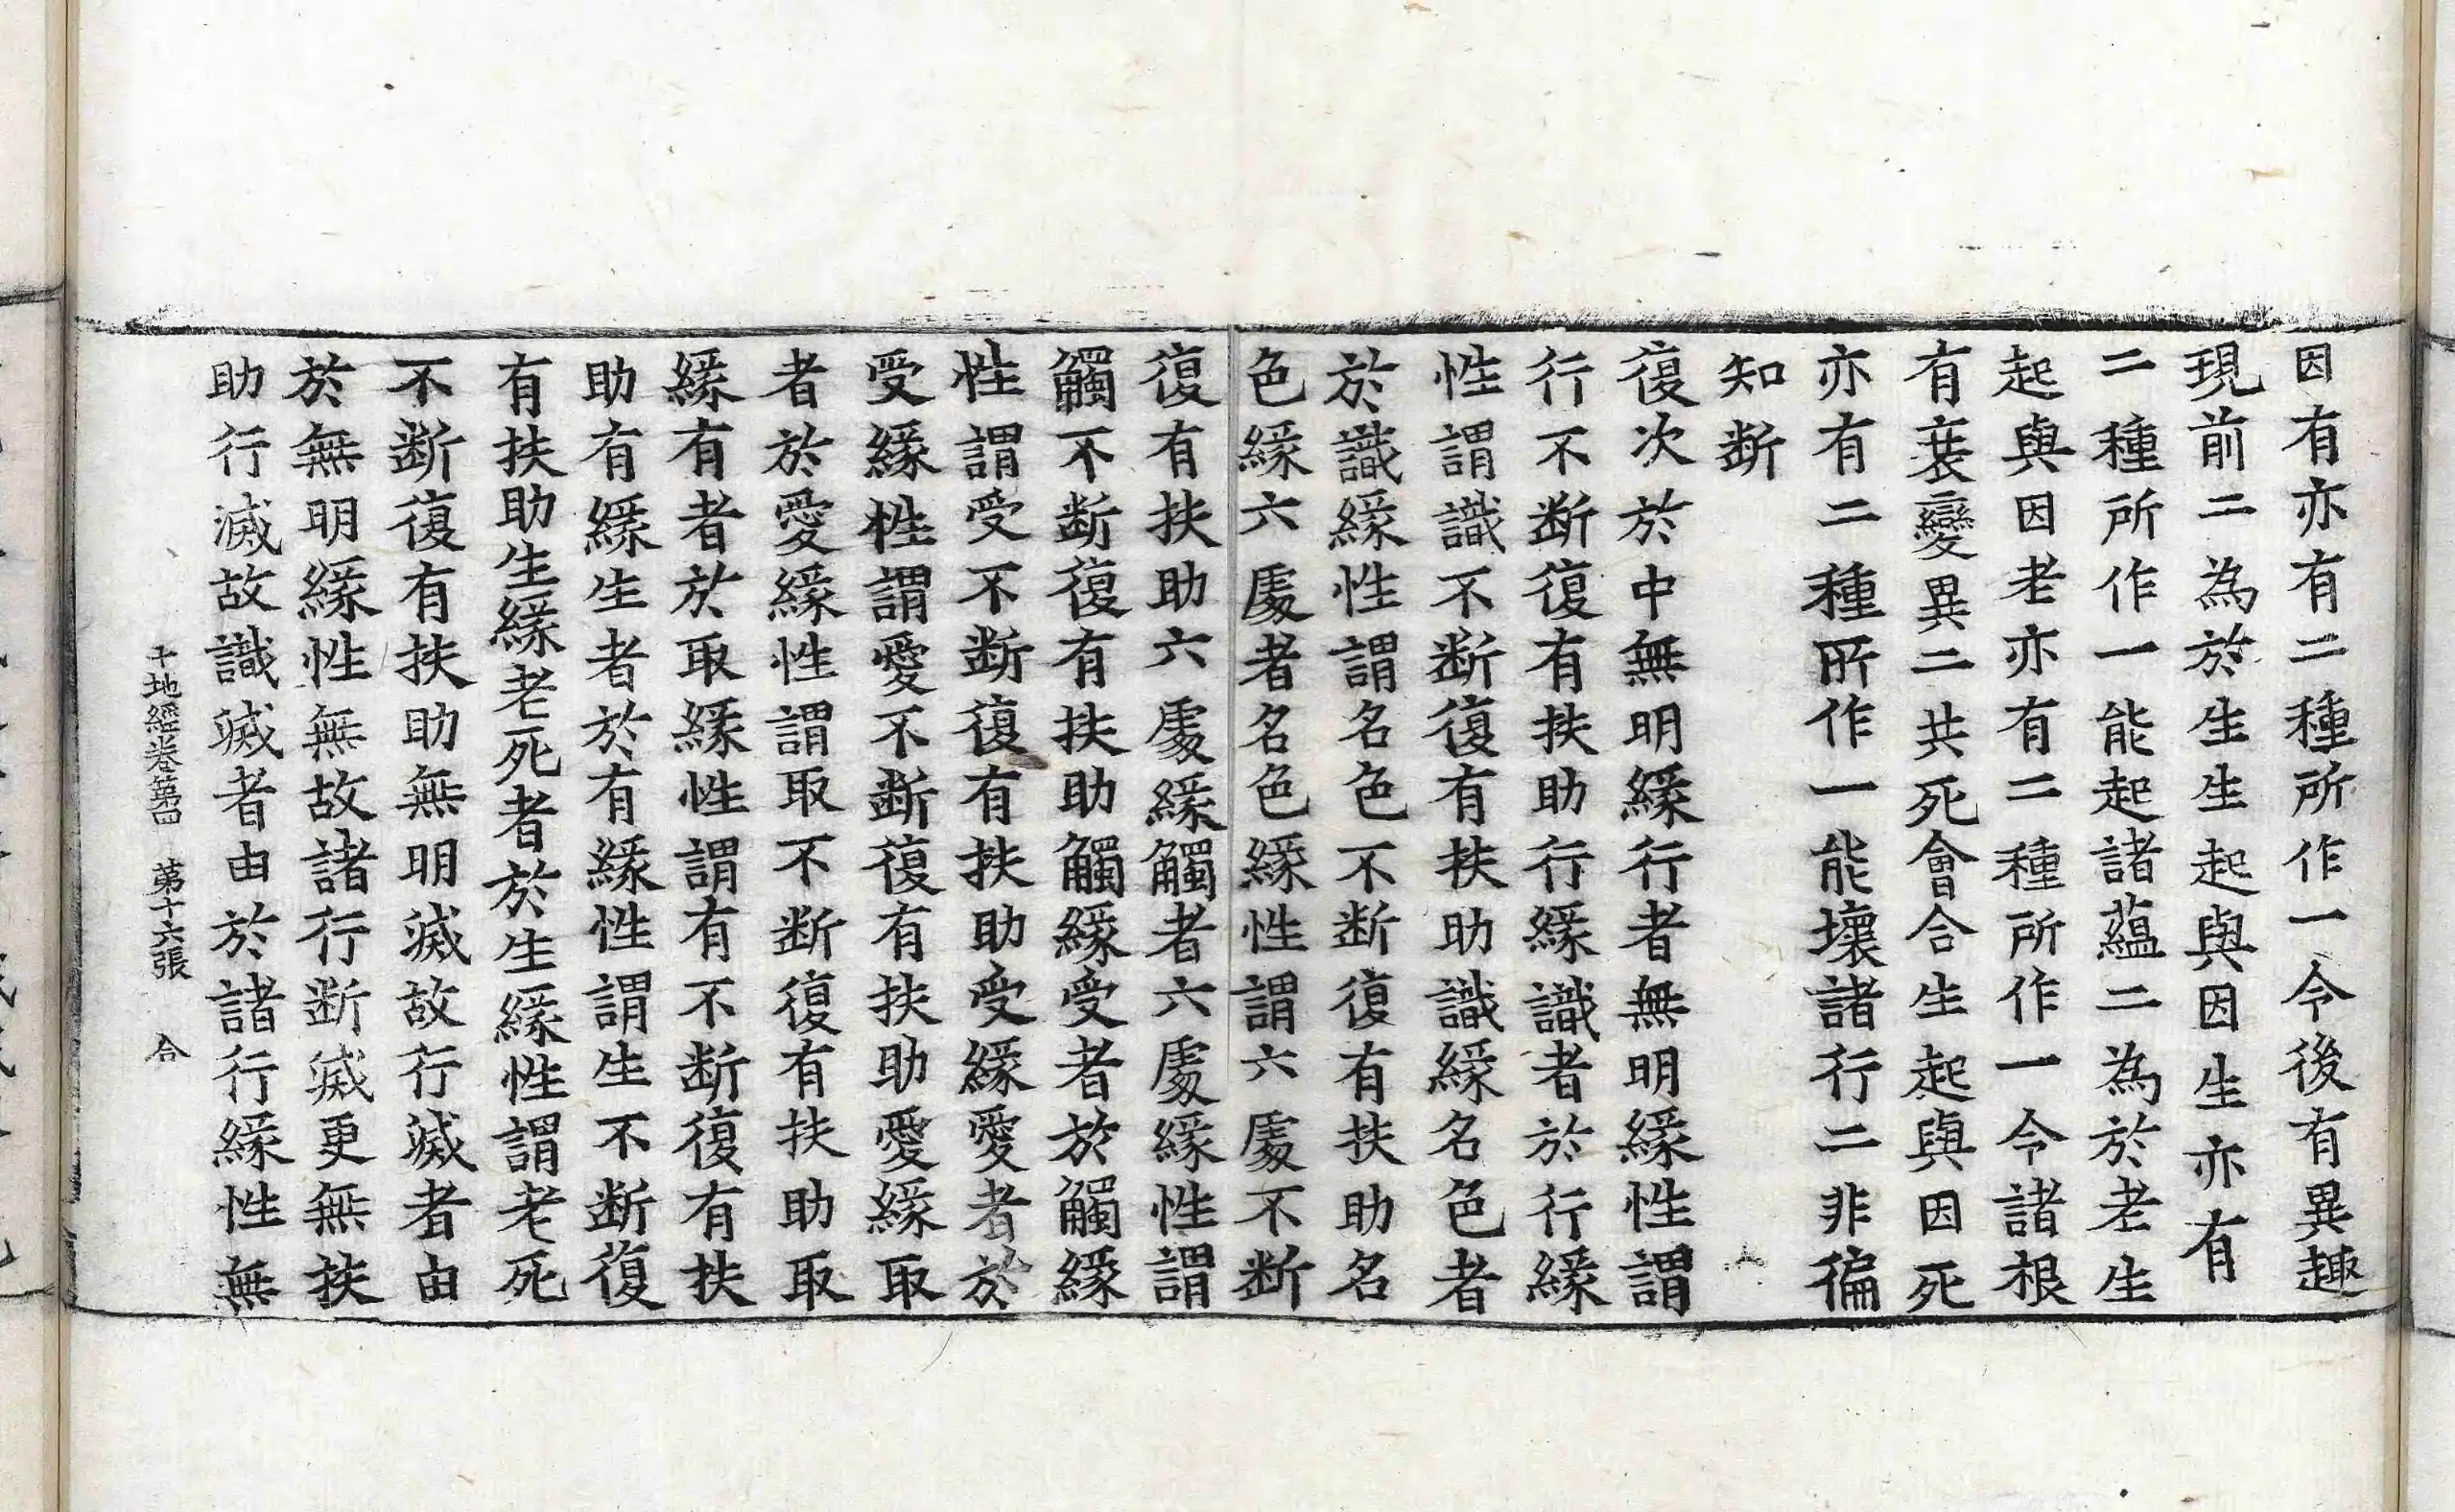 因有亦有二種所作一令後有異趣
現前二為於生生起與因生亦有
二種所作一能起諸蘊二為於老生
起與因老亦有二種所作一令諸根
有衰變異二共死會合生起與因死
亦有二種所作一能壞諸行二非徧
知断
復次於中無明緣行者無明緣性謂
行不断復有扶助行緣識者於行緣
性謂識不断復有扶助識緣名色者
於識緣性謂名色不断復有扶助名
色緣六處者名色緣性謂六處不断
復有扶助六處緣觸者六處緣性謂
觸不断復有扶助觸緣受者於觸緣
性謂受不断復有扶助受緣愛者於
受緣性謂愛不断復有扶助愛緣取
者於愛緣性謂取不断復有扶助取
緣有者於取緣性謂有不断復有扶
助有緣生者於有緣性謂生不断復
有扶助生緣老死者於生緣性謂老死
不断復有扶助無明滅故行滅者由
於無明緣性無故諸行断滅更無扶
助行滅故識滅者由於諸行緣性無
十地經卷第四 第十六張 合